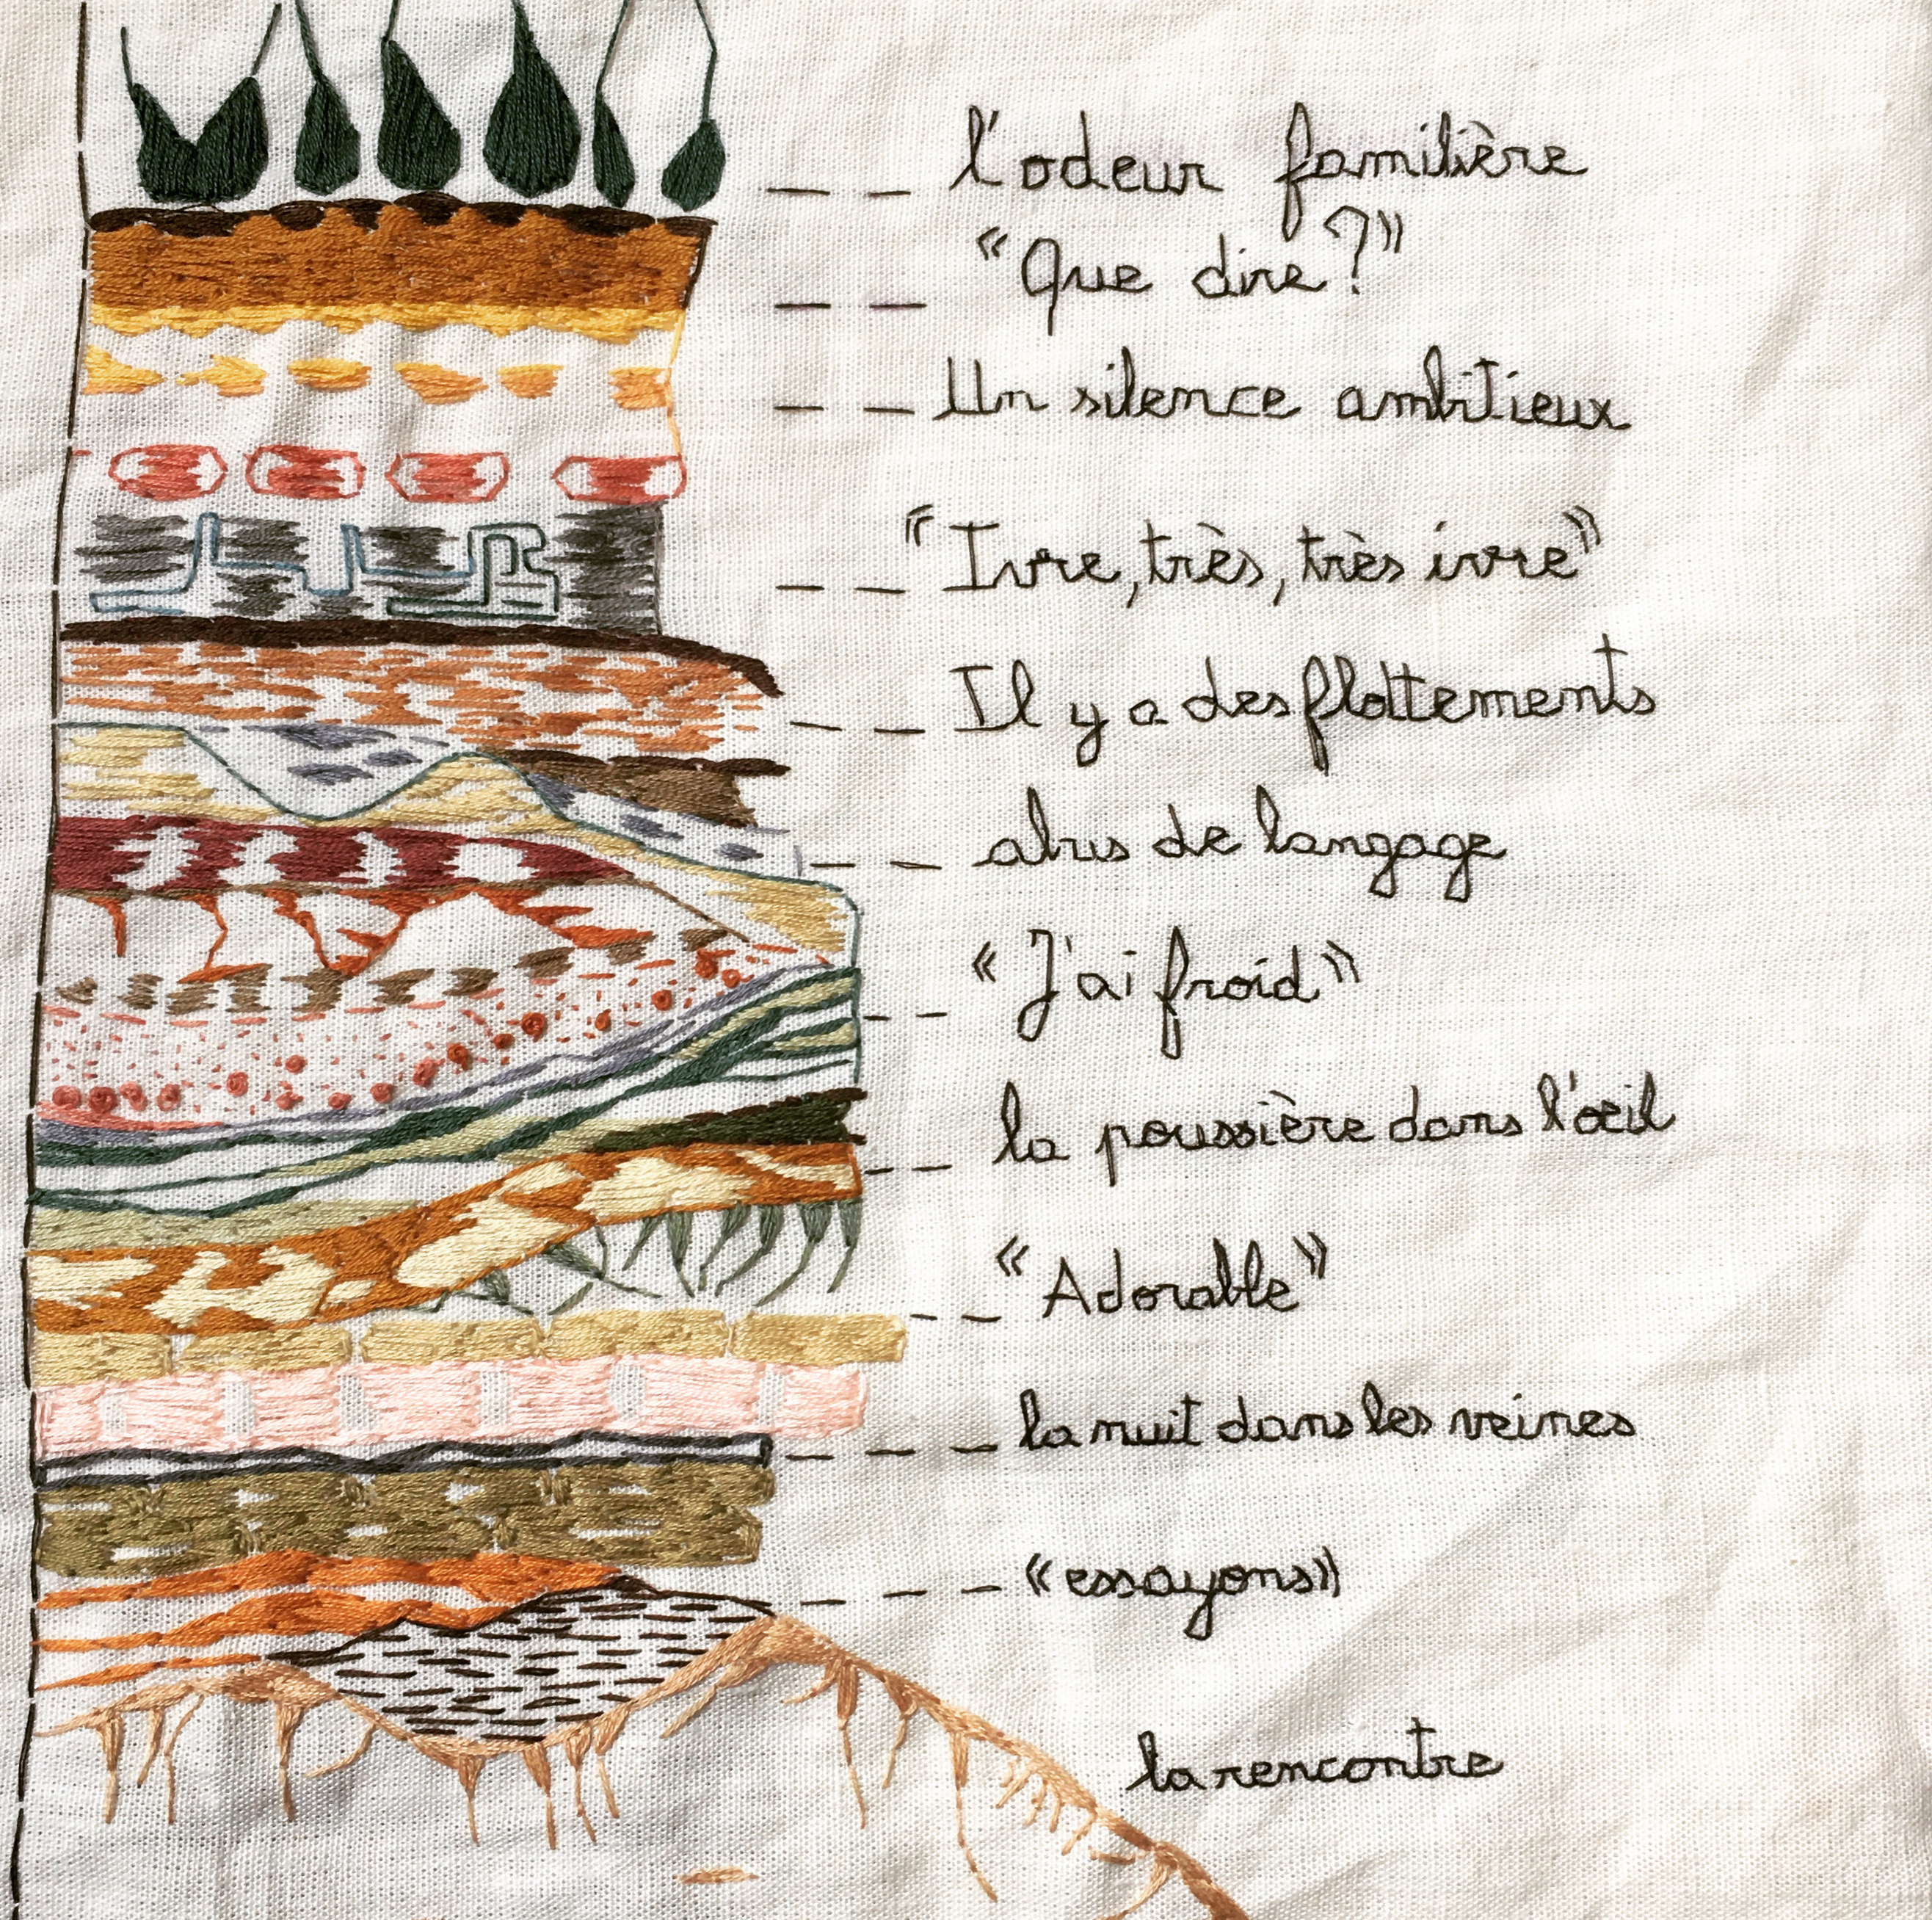 l'odeur familière
"Que dire ?"
Un silence ambitieux
"Ivre, très, très ivre"
Il y a des flottements
abus de langage
« J'ai froid »
la poussière dans l'œil
"Adorable"
la nuit dans les veines
« essayons »
la rencontre